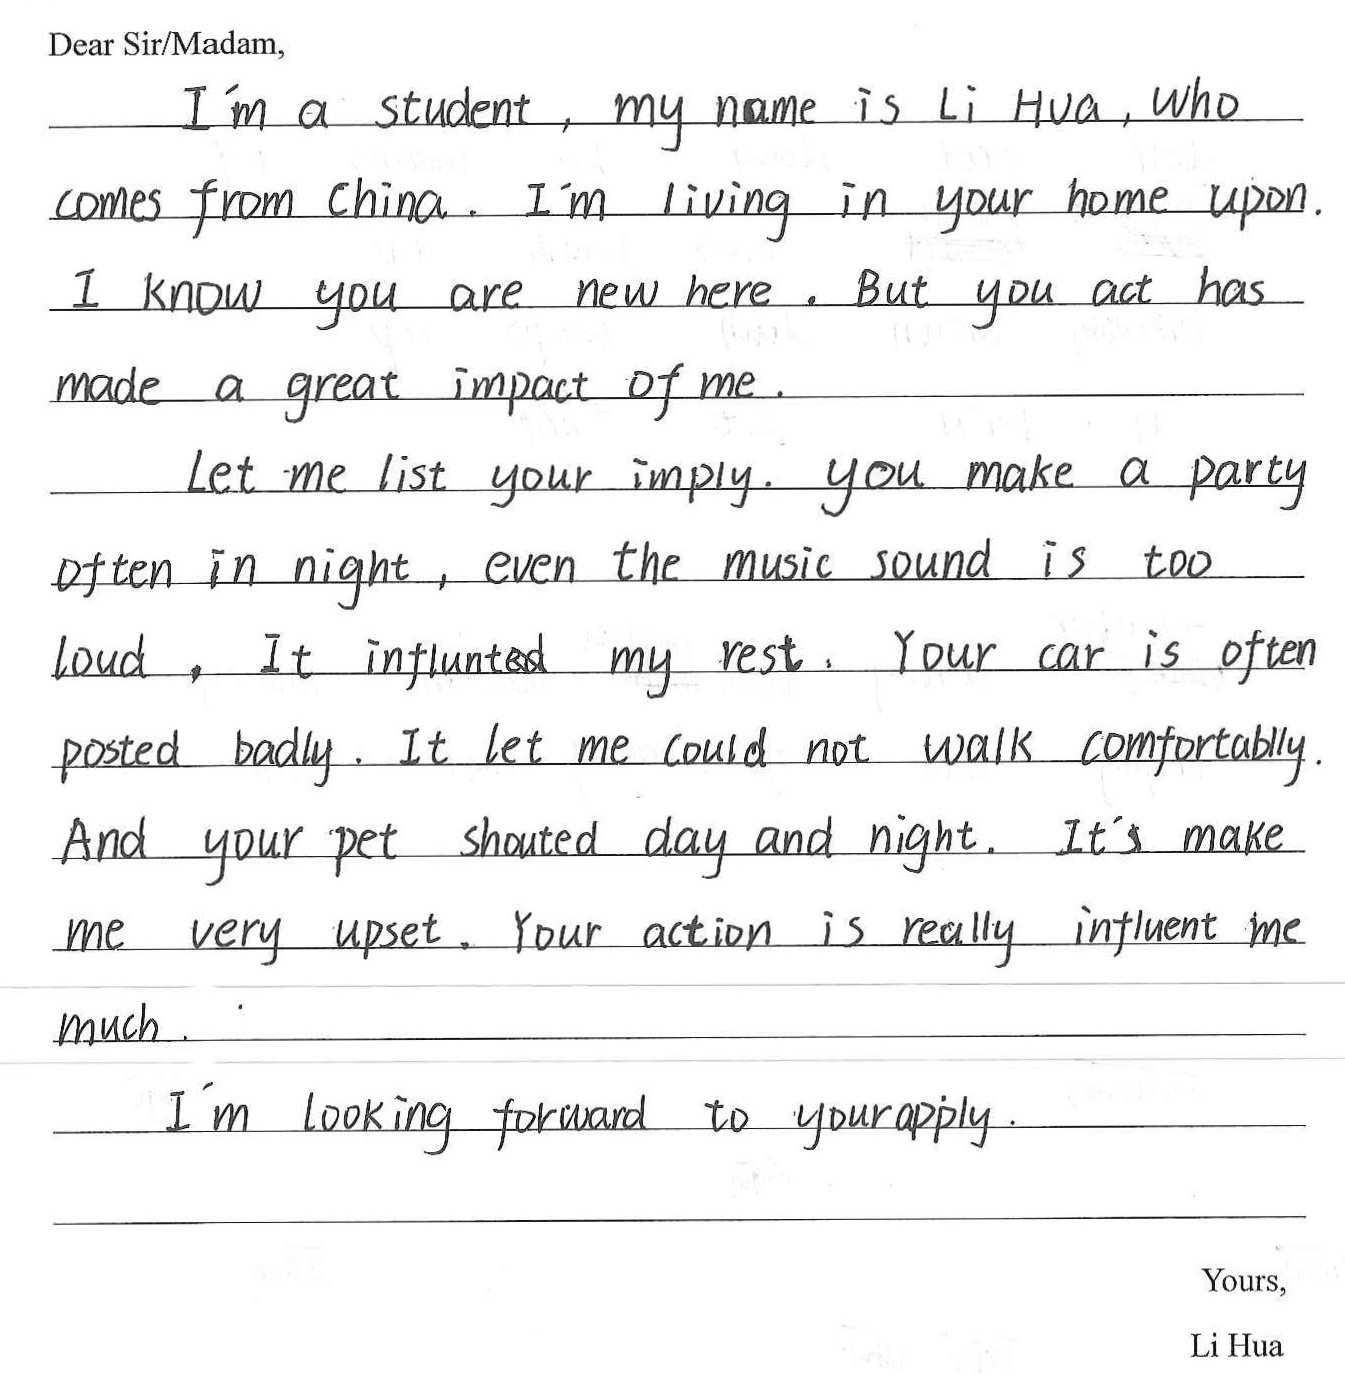 Dear Sir/Madam,
I'm a student, my name is Li Hua, who
comes from China. I'm living in your home upon.
I know you are new here. But you act has
made a great impact of me.
Let me list your imply. you make a party
often in night, even the music sound is too
loud, It influnted my rest. Your car is often
posted badly. It let me could not walk comfortablly.
And your pet shouted day and night. It's make
me very upset. Your action is really influent me
much.
I'm looking forward to your apply.
Yours,
Li Hua